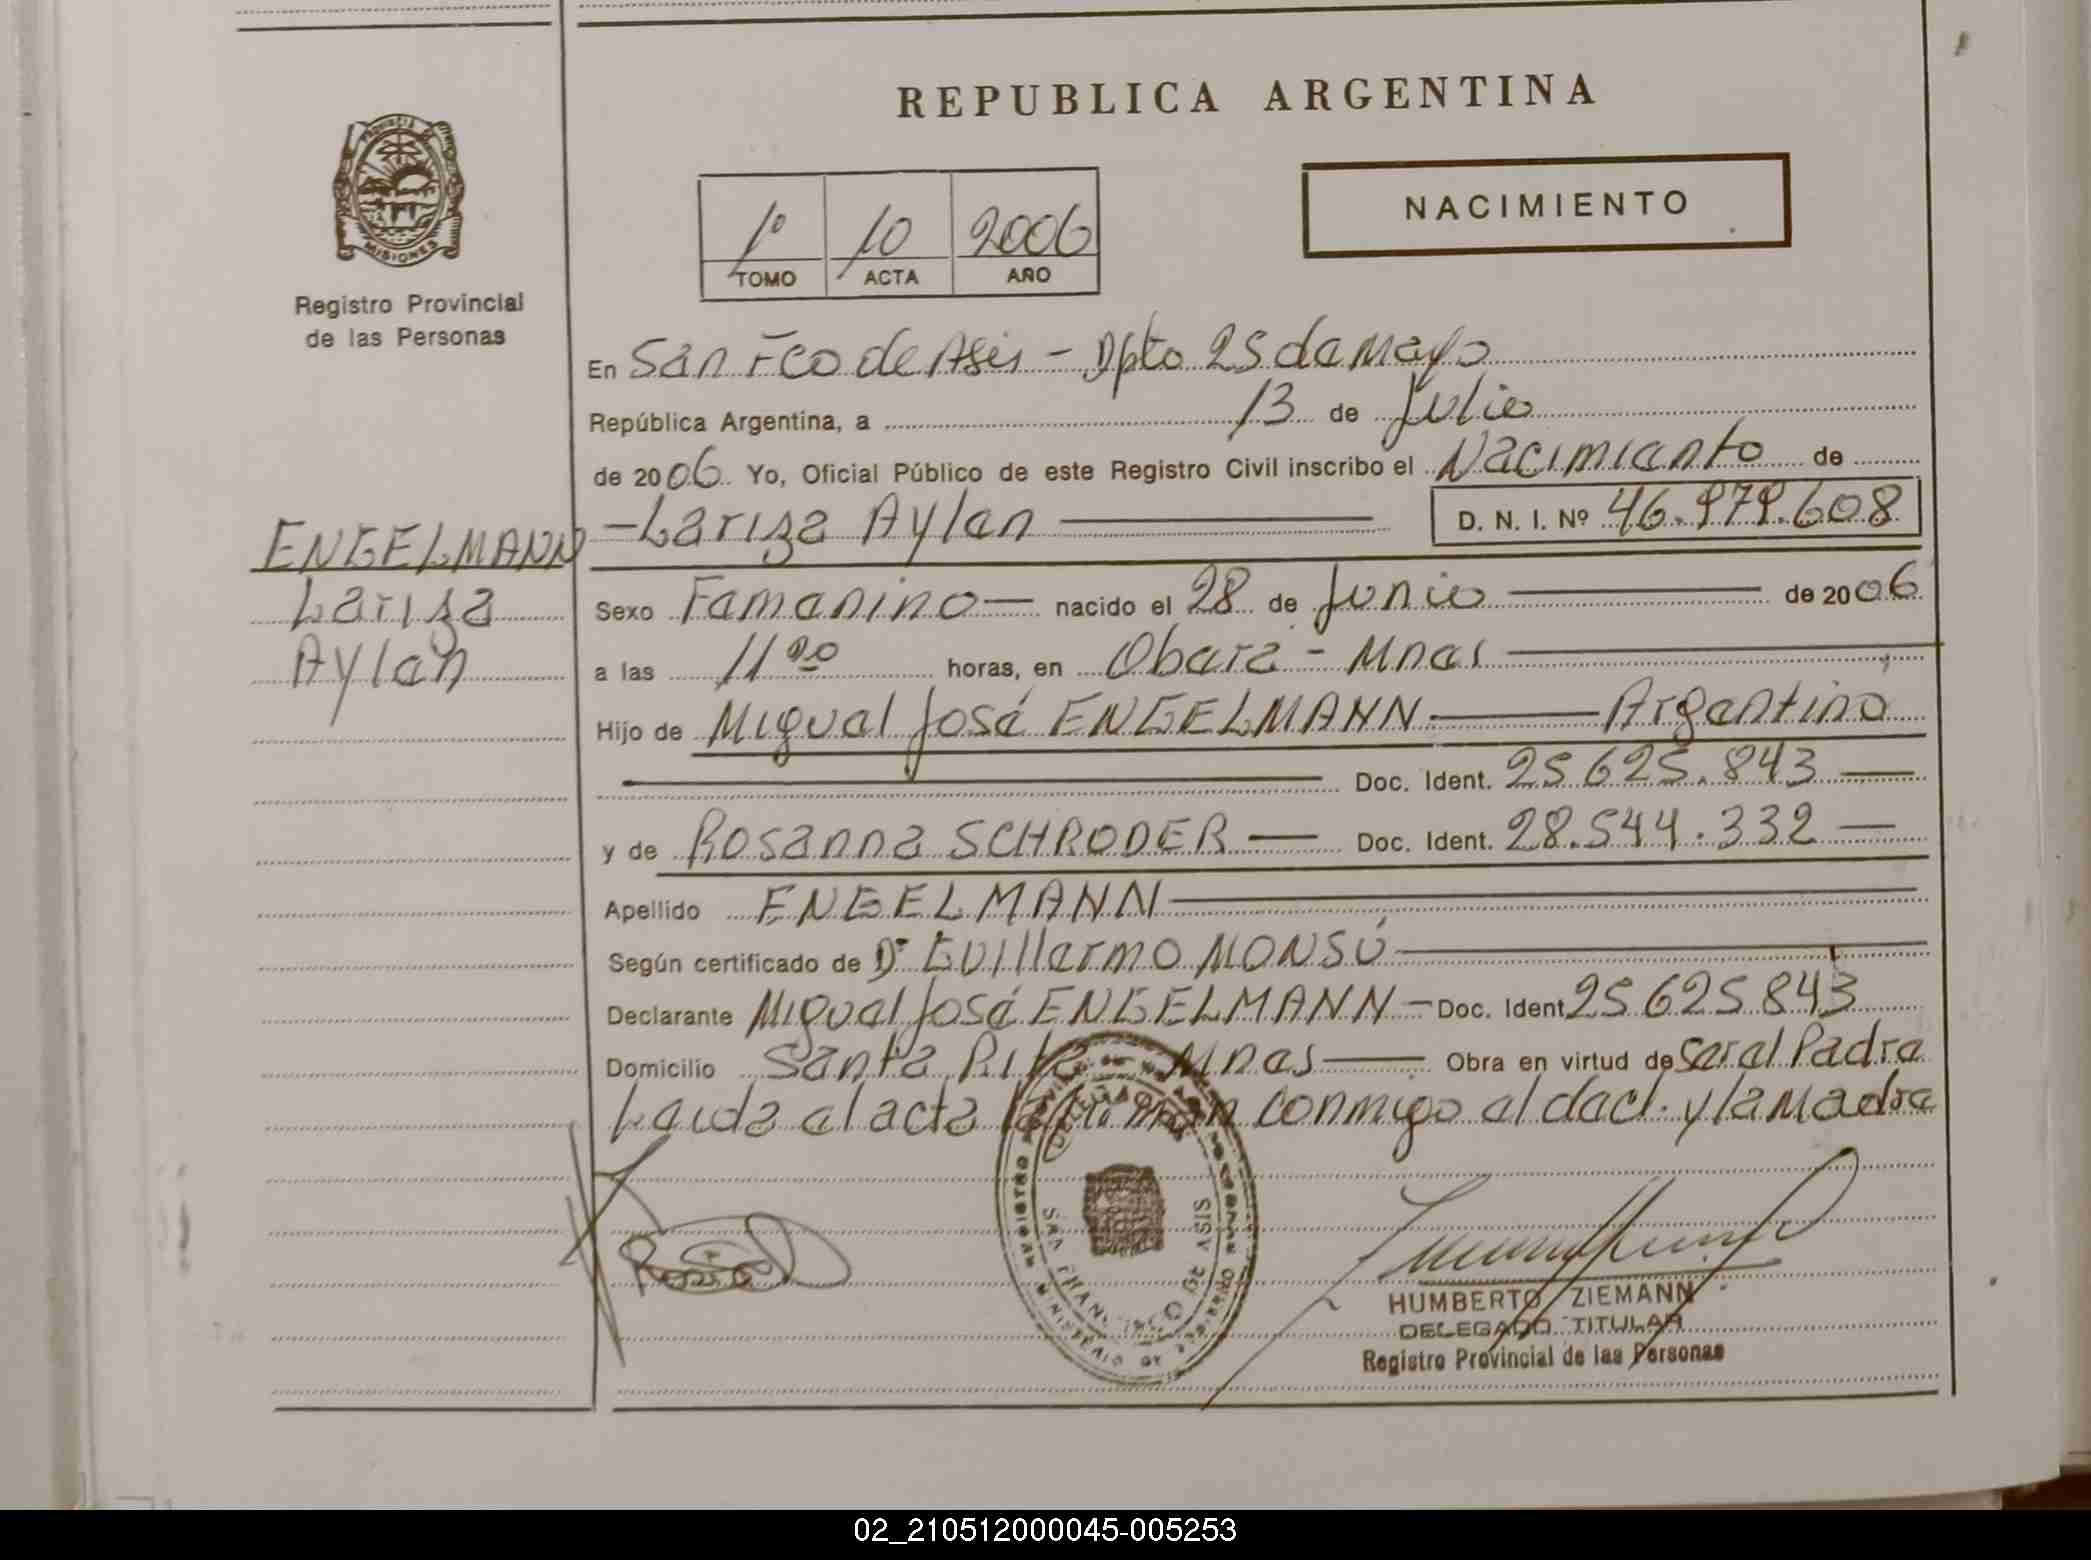 REPUBLICA ARGENTINA
PROVINCIA DE
MISIONES
Registro Provincial
de las Personas
1º 10 2006
TOMO ACTA AÑO
NACIMIENTO
En San Fco de Asis - Dpto 25 de Mayo
República Argentina, a 13 de Julio
de 2006 Yo, Oficial Público de este Registro Civil inscribo el Nacimiento de
- Lariza Aylen D. N. I. Nº 46.979.608
ENGELMANN
Lariza
Aylen
Sexo Femenino nacido el 28 de Junio de 2006
a las 11 horas, en Oberá - Mnes
Hijo de Miguel José ENGELMANN Argentino
Doc. Ident. 25.625.843
y de Rosanna SCHRODER Doc. Ident. 28.544.332
Apellido ENGELMANN
Según certificado de Dr Guillermo MONSÚ
Declarante Miguel José ENGELMANN Doc. Ident 25.625.843
Domicilio Santa Rita Mnes Obra en virtud de Ser el Padre
Leída el acta conmigo el decl. y la Madre
SAN FRANCISCO DE ASIS
HUMBERTO ZIEMANN
DELEGADO TITULAR
Registro Provincial de las Personas
02_210512000045-005253